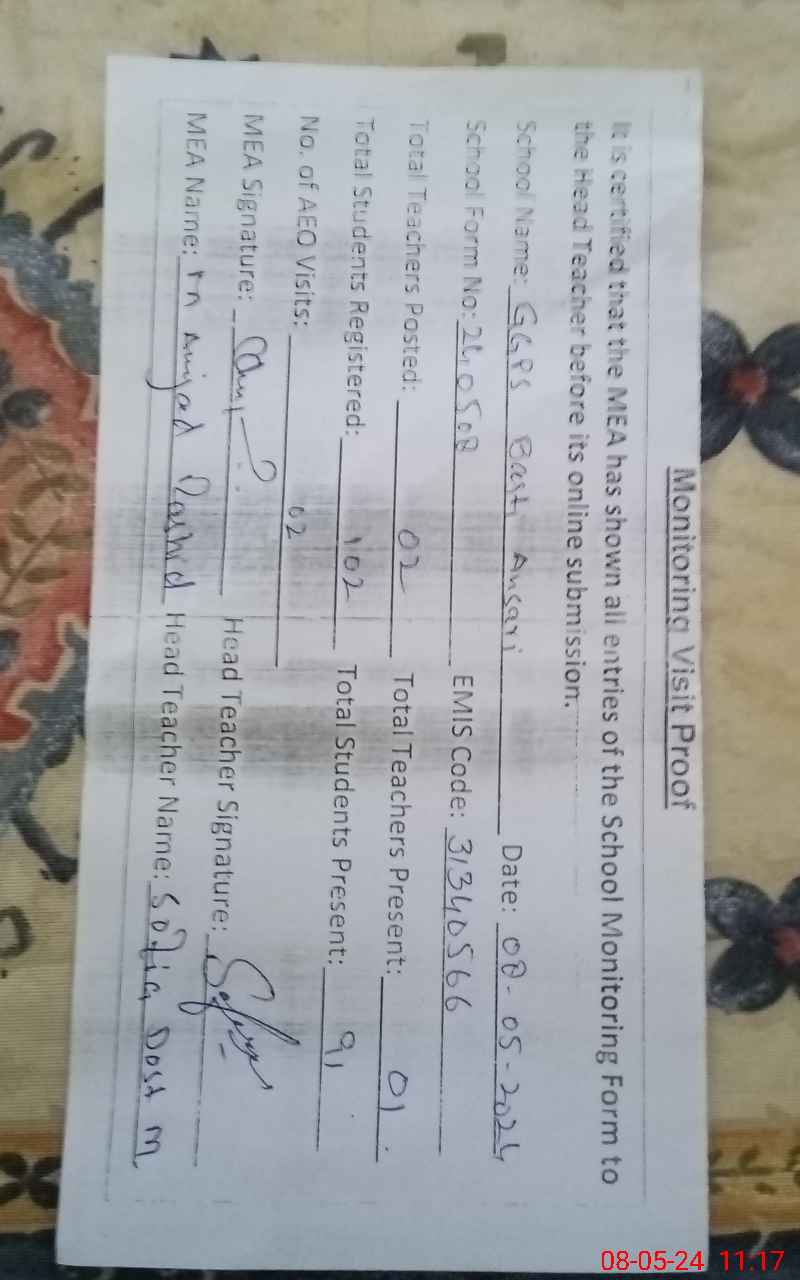 Monitoring Visit Proof
It is certified that the MEA has shown all entries of the School Monitoring Form to
the Head Teacher before its online submission.
School Name: GGPS Basti Ansari Date: 08-05-2024
School Form No: 240508 EMIS Code: 31340566
Total Teachers Posted: 02 Total Teachers Present: 01
Total Students Registered: 102 Total Students Present: 91
No. of AEO Visits: 02
MEA Signature: Head Teacher Signature:
MEA Name: M Amjad Rashid Head Teacher Name: Sofia Dost M
08-05-24 11:17